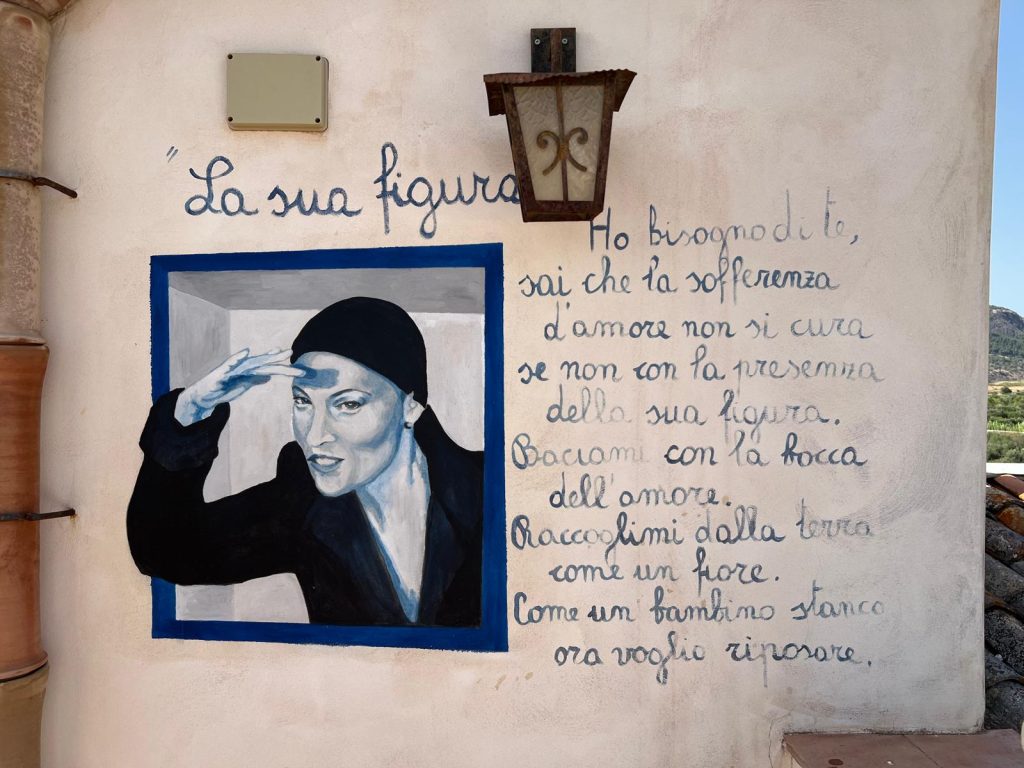 "La sua figura
Ho bisogno di te,
sai che la sofferenza
d'amore non si cura
se non con la presenza
della sua figura.
Baciami con la bocca
dell'amore.
Raccoglimi dalla terra
come un fiore.
Come un bambino stanco
ora voglio riposare.